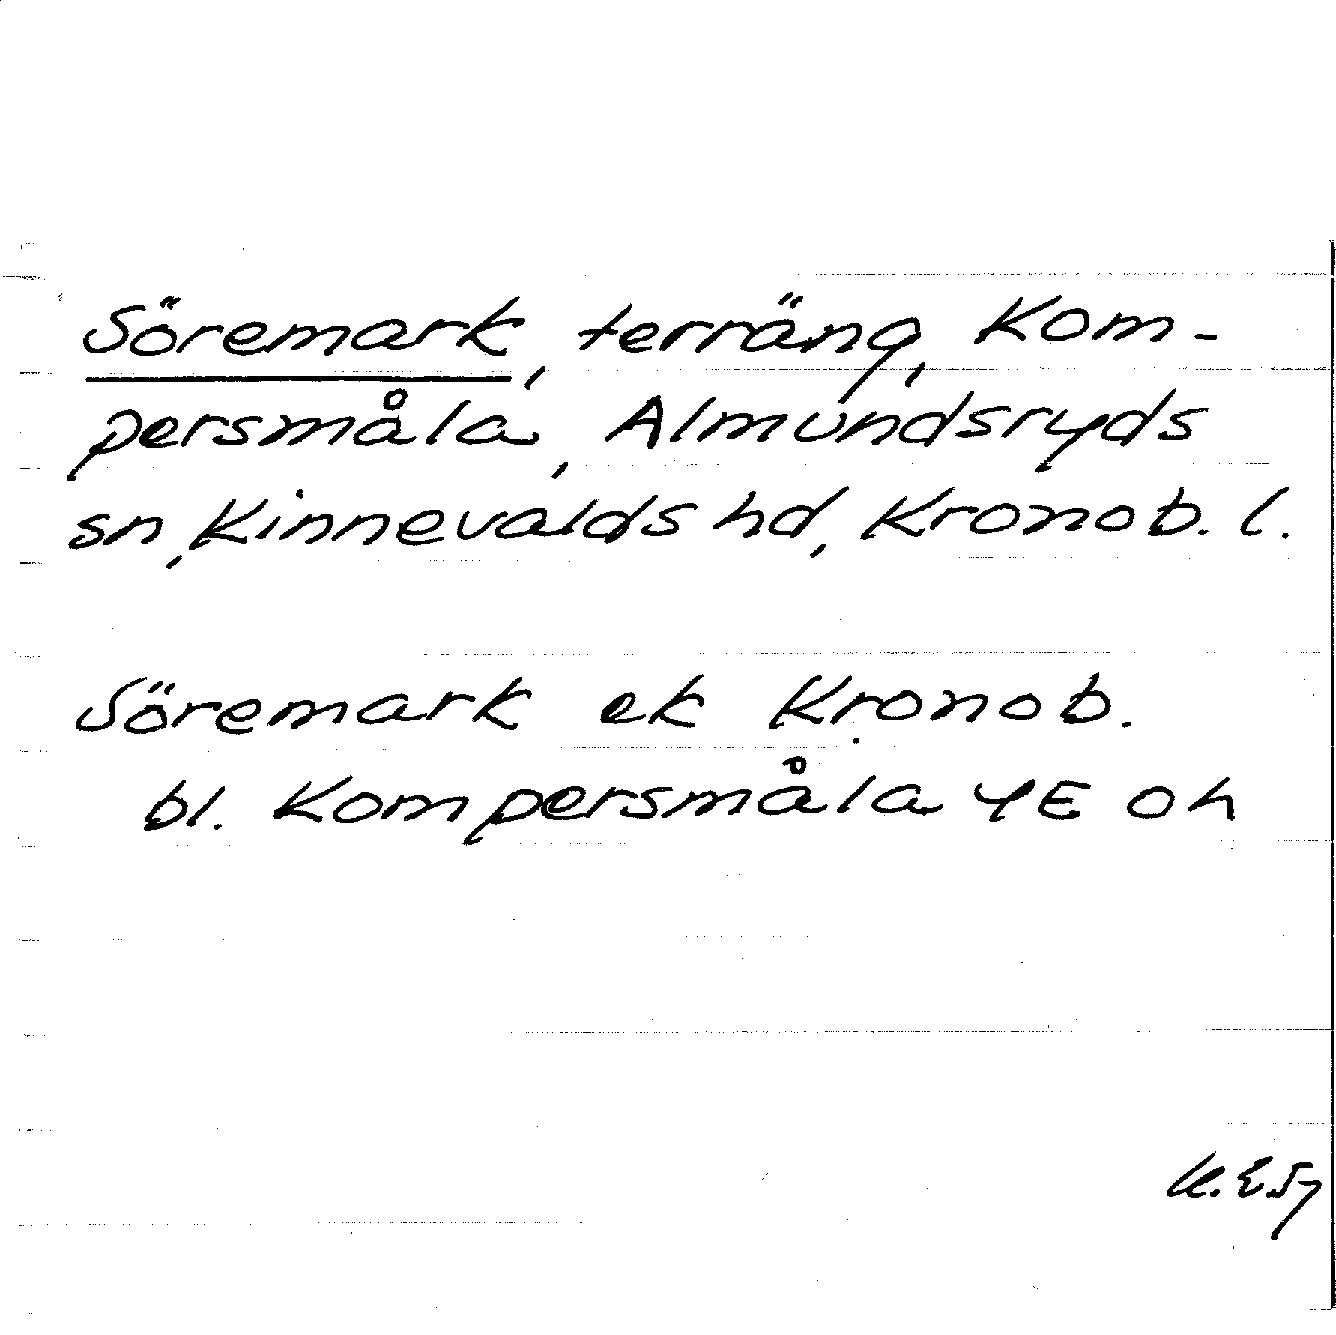 Söremark, terräng, Kom-
persmåla, Almundsryds
sn, Kinnevalds hd, Kronob. l.
Söremark ek Kronob.
bl. Kompersmåla 4E oh